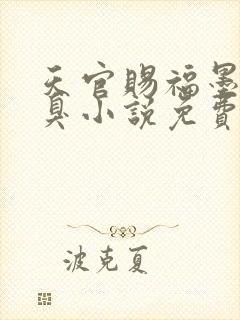 天官賜福墨
臭小説免費
波克夏